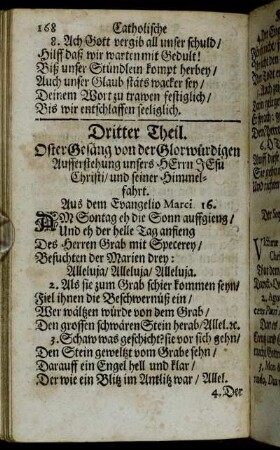 168 Catholische
8. Ach Gott vergib all unser schuld/
Hilff daß wir warten mit Gedult!
Biß unser Stündlein kompt herbey/
Auch unser Glaub stäts wacker sey/
Deinem Wort zu trawen festiglich/
Bis wir entschlaffen seeliglich.
Dritter Theil.
Oster Gesäng von der Glorwürdigen
Aufferstehung unsers HErrn JESu
Christi/ und seiner Himmel-
fahrt.
Aus dem Evangelio Marci 16.
AM Sontag eh die Sonn auffgieng/
Und eh der helle Tag anfieng
Des Herren Grab mit Specerey/
Besuchten der Marien drey:
Alleluja/ Alleluja/ Alleluja.
2. Als sie zum Grab schier kommen seyn/
Fiel ihnen die Beschwernüß ein/
Wer wältzen würde von dem Grab/
Den grossen schwären Stein herab/ Allel. ꝛc.
3. Schaw was geschicht? sie vor sich gehn/
Den Stein geweltzt vom Grabe sehn/
Darauff ein Engel hell und klar/
Der wie ein Blitz im Antlitz war/ Allel.
4. Der